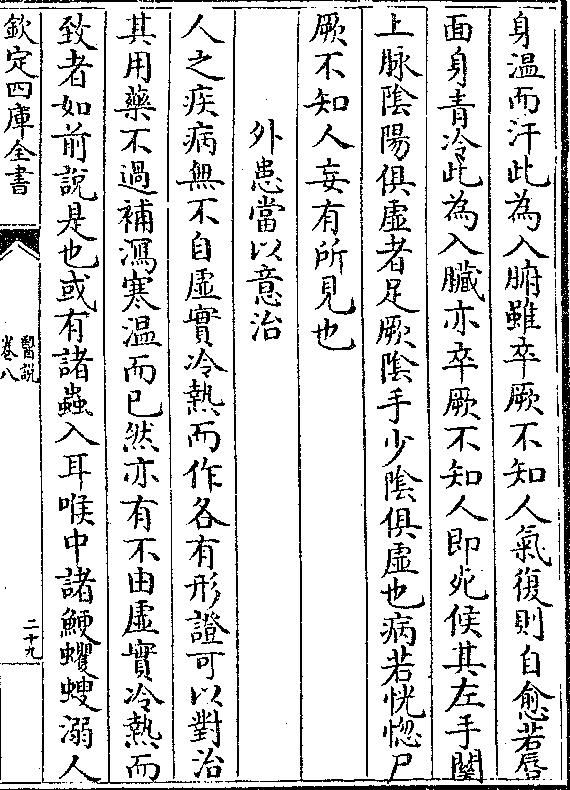 身温而汗此為入腑雖卒厥不知人氣復則自愈若唇
面身青冷此為入臟亦卒厥不知人即死候其左手關
上脉陰陽俱虚者足厥陰手少陰俱虚也病若恍惚尸
厥不知人妄有所見也
外患當以意治
人之疾病無不自虚實冷熱而作各有形證可以對治
其用藥不過補瀉寒温而已然亦有不由虚實冷熱而
致者如前說是也或有諸蟲入耳喉中諸鯁蠼螋溺人
欽定四庫全書
醫說
卷八
二十九